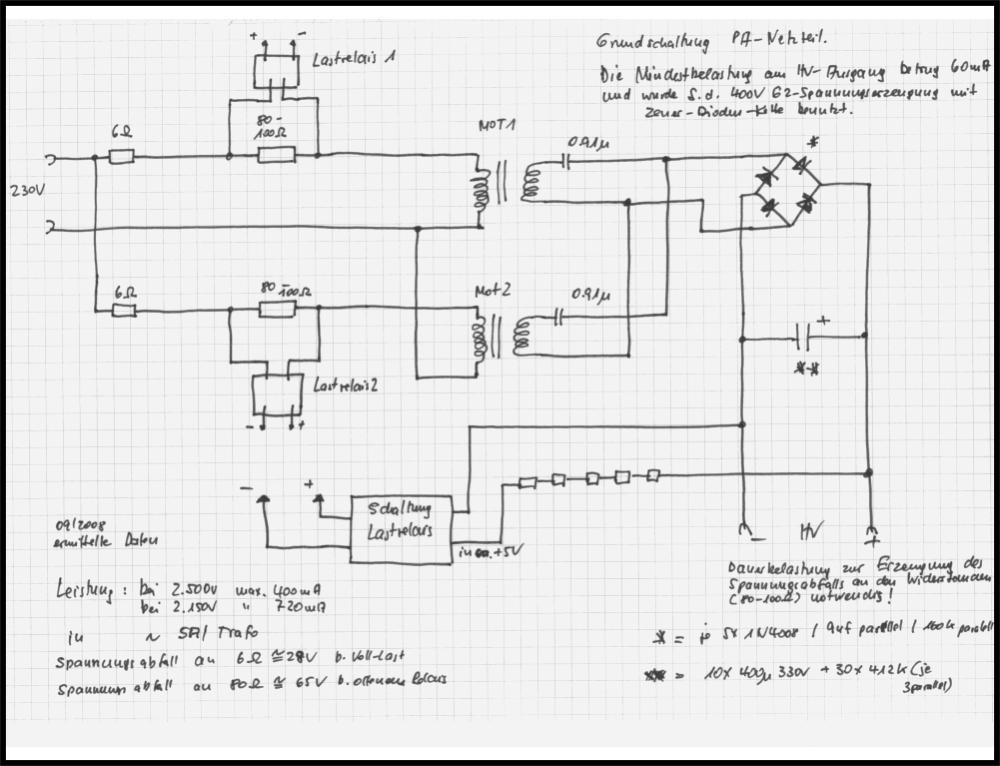 Grundschaltung PA-Netzteil.
Die Mindestbelastung am HV-Ausgang betrug 60mA
und wurde f. d. 400V G2-Spannungserzeugung mit
Zener-Dioden-Kette benutzt.
+ -
Lastrelais 1
80-
100Ω
6Ω
MOT1
0.91µ
*
230V
6Ω
80-100Ω
MOT2
0.91µ
+
**
Lastrelais 2
- +
- +
Schaltung
Lastrelais
in ca. +5V
- HV +
09/2008
ermittelte Daten
Leistung: bei 2.500V max. 400mA
bei 2.150V " 720mA
in ~ 5A/Trafo
Spannungsabfall an 6Ω ≅ 28V b. Vollast
Spannungsabfall an 80Ω ≅ 65V b. offenem Relais
Dauerbelastung zur Erzeugung des
Spannungsabfalls an den Widerständen
(80-100Ω) notwendig!
* = je 5x 1N4008 / 9nF parallel / 160k parallel
** = 10x 400µ 330V + 30x 412k (je
3 parallel)